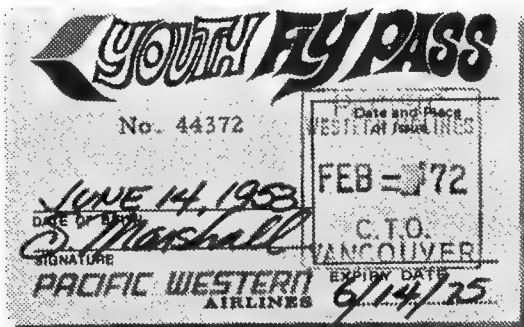 YOUTH FLY PASS
No. 44372
Date and Place
of Issue
WESTERN AIRLINES
FEB '72
C.T.O.
VANCOUVER
JUNE 14, 1953
DATE OF BIRTH
Marshall
SIGNATURE
PACIFIC WESTERN
AIRLINES
EXPIRY DATE
6/14/75